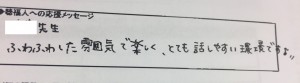 人への応援メッセージ
先生
ふわふわした雰囲気で楽しく、とても話しやすい環境ですよ!!